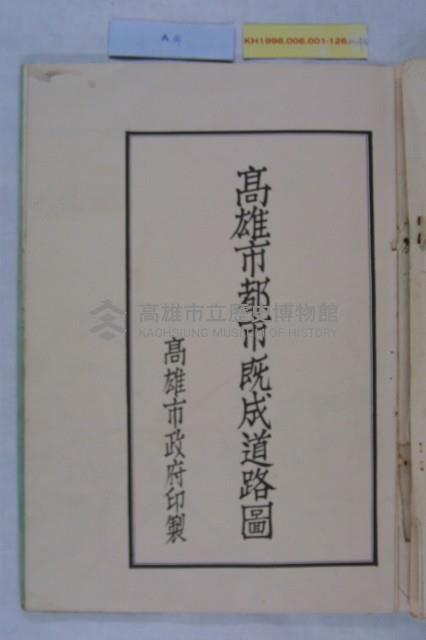 KH1998.006.001-126
高雄市都市既成道路圖
高雄市政府印製
高雄市立歷史博物館
KAOHSIUNG MUSEUM OF HISTORY